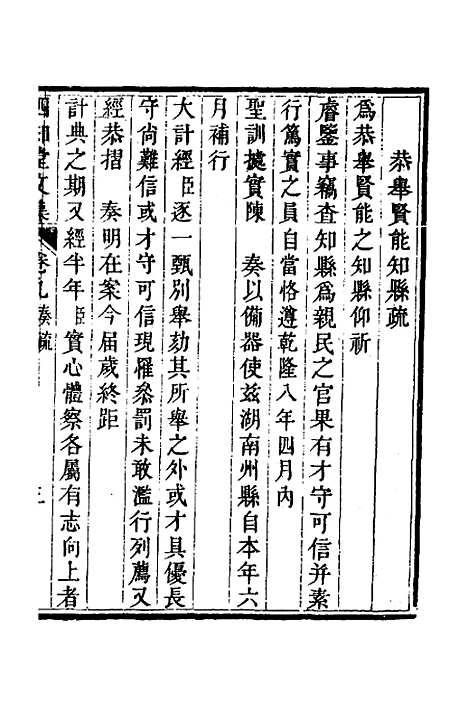 恭舉賢能知縣疏
爲恭舉賢能之知縣仰祈
睿鑒事竊查知縣爲親民之官果有才守可信并素
行篤實之員自當恪遵乾隆八年四月內
聖訓據實陳　奏以備器使兹湖南州縣自本年六
月補行
大計經臣逐一甄別舉劾其所舉之外或才具優長
守尚難信或才守可信現罹叅罰未敢濫行列薦又
經恭摺　奏明在案今届歲終距
計典之期又經半年臣實心體察各屬有志向上者
四知堂文集　卷九奏疏　三